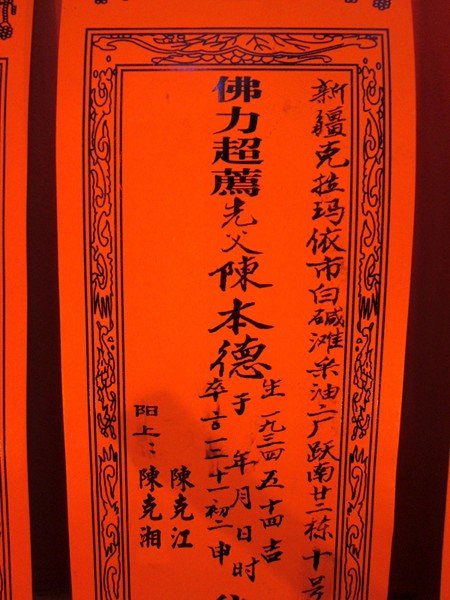 新疆克拉玛依市白碱滩采油二厂跃南廿二栋十号
佛力超薦先父陳本德
生一九三四五十四吉
于年月日时
卒二〇一三十一初二申
陳克江
阳上：陳克湘